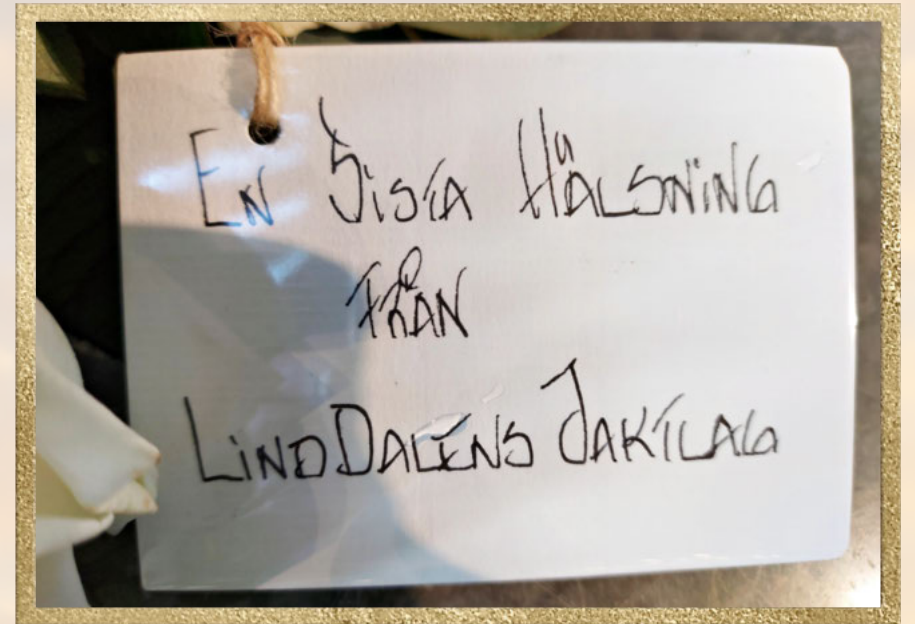 En Sista Hälsning
från
LindDalens Jaktlag